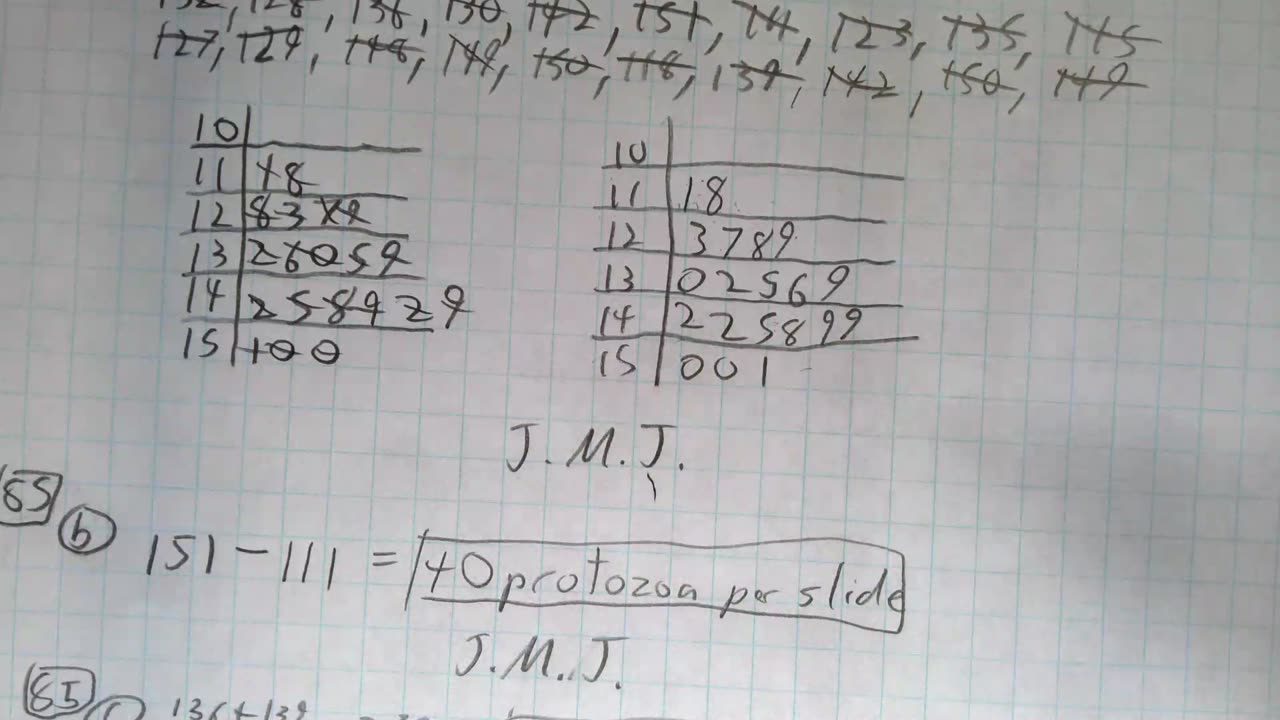 132, 128, 136, 130, 142, 151, 111, 123, 135, 145
127, 129, 148, 149, 150, 118, 139, 142, 150, 149
10
11 18
12 8379
13 26059
14 258929
15 100
10
11 18
12 3789
13 02569
14 225899
15 001
J.M.J.
65
b 151 - 111 = 40 protozoa per slide
J.M.J.